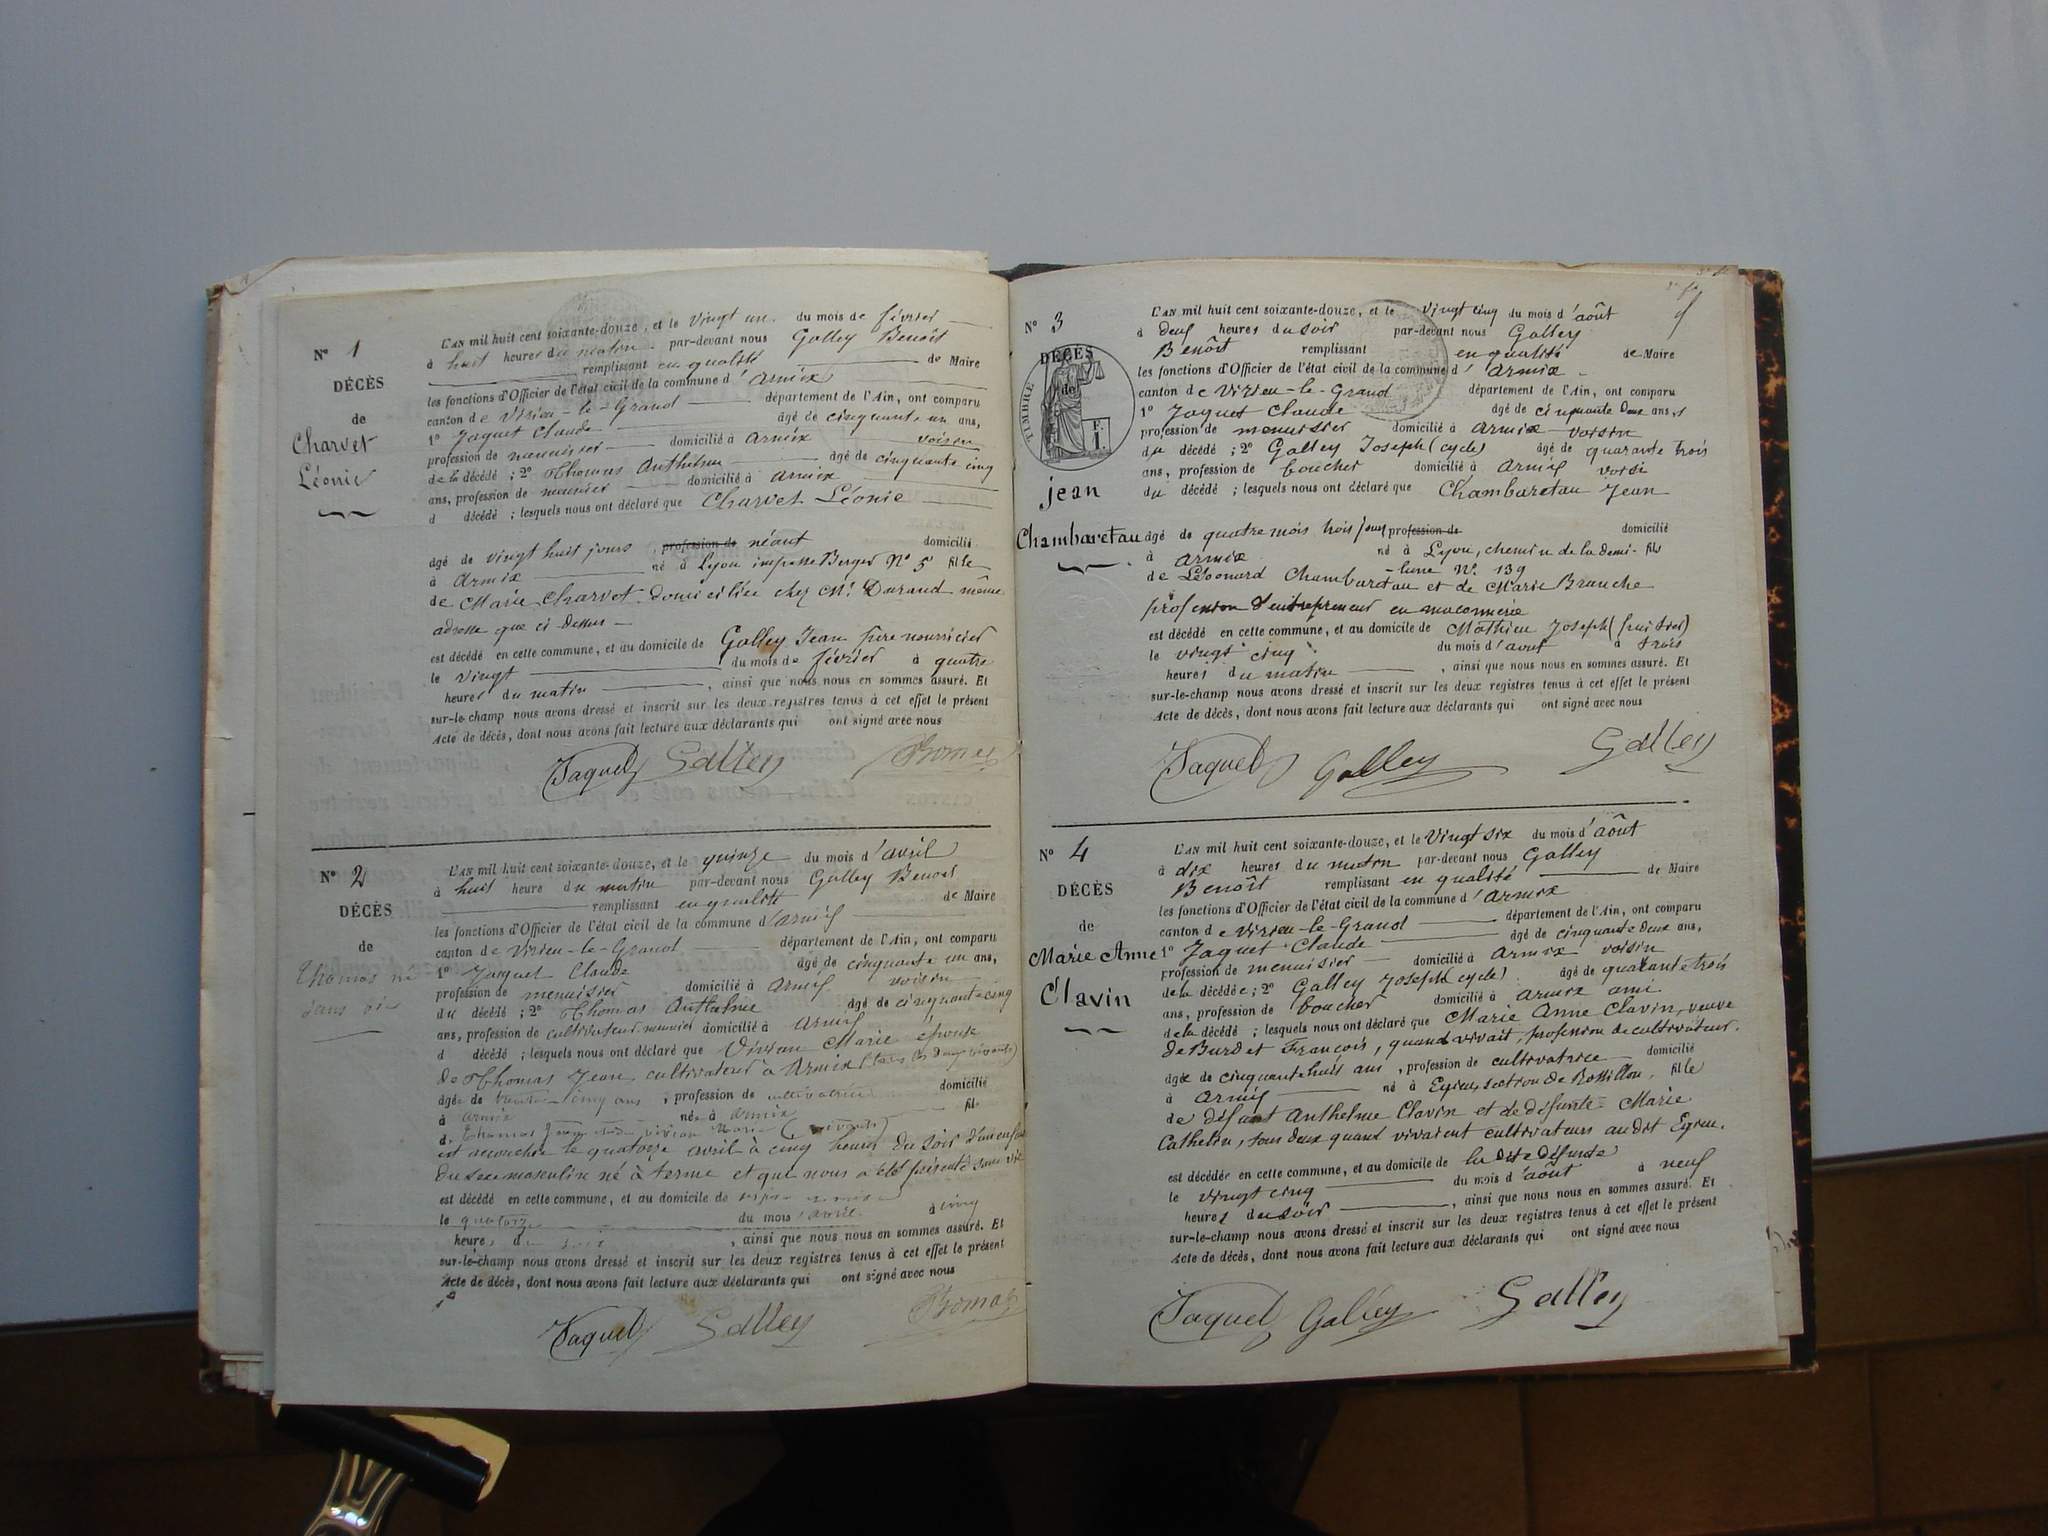 N° 1
DÉCÈS
de
Charvet
Léonie
L'AN mil huit cent soixante-douze, et le vingt un du mois de février
à huit heures du matin par-devant nous Golley Benoit
remplissant en qualité de Maire
les fonctions d'Officier de l'état civil de la commune d'Armix
canton de Virieu-le-Grand département de l'Ain, ont comparu
1° Jaquet Claude âgé de cinquante un ans,
profession de menuisier domicilié à Armix voisin
de la décédé ; 2° Thomas Anthelme âgé de cinquante cinq
ans, profession de meunier domicilié à Armix
d décédé ; lesquels nous ont déclaré que Charvet Léonie
âgé de vingt huit jours, profession de néant domicilié
à Armix né à Lyon impasse Berger N° 5 fille
de Marie Charvet domiciliée chez Mr Durand même
adresse que ci-dessus
est décédé en cette commune, et au domicile de Golley Jean père nourricier
le vingt du mois de février à quatre
heures du matin, ainsi que nous nous en sommes assuré. Et
sur-le-champ nous avons dressé et inscrit sur les deux registres tenus à cet effet le présent
acte de décès, dont nous avons fait lecture aux déclarants qui ont signé avec nous
Jaquet Golley Thomas
N° 2
DÉCÈS
de
Thomas né
sans vie
L'AN mil huit cent soixante-douze, et le quinze du mois d'avril
à huit heure du matin par-devant nous Golley Benoit
remplissant en qualité de Maire
les fonctions d'Officier de l'état civil de la commune d'Armix
canton de Virieu-le-Grand département de l'Ain, ont comparu
1° Jaquet Claude âgé de cinquante un ans,
profession de menuisier domicilié à Armix voisin
du décédé ; 2° Thomas Anthelme âgé de cinquante cinq
ans, profession de cultivateur meunier domicilié à Armix
d décédé ; lesquels nous ont déclaré que Vivian Marie épouse
de Thomas Jean, cultivateur à Armix (tous les deux vivants)
âgée de cinq ans, profession de cultivatrice domicilié
à Armix née à Armix fils
de Thomas Jean Vivian Marie (vivants)
est accouchée le quatorze avril à cinq heures du soir d'un enfant
du sexe masculin né à terme et que nous a été présenté sans vie
est décédé en cette commune, et au domicile de
le quatorze du mois d'avril à cinq
heures du soir, ainsi que nous nous en sommes assuré. Et
sur-le-champ nous avons dressé et inscrit sur les deux registres tenus à cet effet le présent
acte de décès, dont nous avons fait lecture aux déclarants qui ont signé avec nous
Jaquet Golley Thomas
N° 3
DÉCÈS
de
TIMBRE
F.
1.
jean
Chambaretau
L'AN mil huit cent soixante-douze, et le vingt cinq du mois d'août
à deux heures du soir par-devant nous Golley
Benoît remplissant en qualité de Maire
les fonctions d'Officier de l'état civil de la commune d'Armix
canton de Virieu-le-Grand département de l'Ain, ont comparu
1° Jaquet Claude âgé de cinquante deux ans,
profession de menuisier domicilié à Armix voisin
du décédé ; 2° Golley Joseph (cycle) âgé de quarante trois
ans, profession de boucher domicilié à Armix voisi
du décédé ; lesquels nous ont déclaré que Chambaretau Jean
âgé de quatre mois trois jours profession de domicilié
à Armix né à Lyon, chemin de la demi- fils
-lune N° 139
de Léonard Chambaretau et de Marie Branche
profession d'entrepreneur en maconnerie
est décédé en cette commune, et au domicile de Mathieu Joseph (fruitier)
le vingt cinq du mois d'août à trois
heures du matin, ainsi que nous nous en sommes assuré. Et
sur-le-champ nous avons dressé et inscrit sur les deux registres tenus à cet effet le présent
acte de décès, dont nous avons fait lecture aux déclarants qui ont signé avec nous
Jaquet Golley Golley
N° 4
DÉCÈS
de
Marie Anne
Clavin
L'AN mil huit cent soixante-douze, et le Vingt six du mois d'août
à dix heures du matin par-devant nous Golley
Benoît remplissant en qualité de Maire
les fonctions d'Officier de l'état civil de la commune d'Armix
canton de Virieu-le-Grand département de l'Ain, ont comparu
1° Jaquet Claude âgé de cinquante deux ans,
profession de menuisier domicilié à Armix voisin
de la décédée ; 2° Golley Joseph (cycle) âgé de quarante trois
ans, profession de boucher domicilié à Armix ami
de la décédé ; lesquels nous ont déclaré que Marie Anne Clavin, veuve
de Burdet François, quand vivait, profession de cultivateur.
âgée de cinquante huit ans, profession de cultivatrice domicilié
à Armix né à Eyrieu, section de Rossillon, fille
de défunt Anthelme Clavin et de défunte Marie
Cathelin, tous deux quand vivaient cultivateurs au dit Eyrieu.
est décédée en cette commune, et au domicile de la dite défunte
le vingt cinq du mois d'août à neuf
heures du soir, ainsi que nous nous en sommes assuré. Et
sur-le-champ nous avons dressé et inscrit sur les deux registres tenus à cet effet le présent
acte de décès, dont nous avons fait lecture aux déclarants qui ont signé avec nous
Jaquet Golley Golley